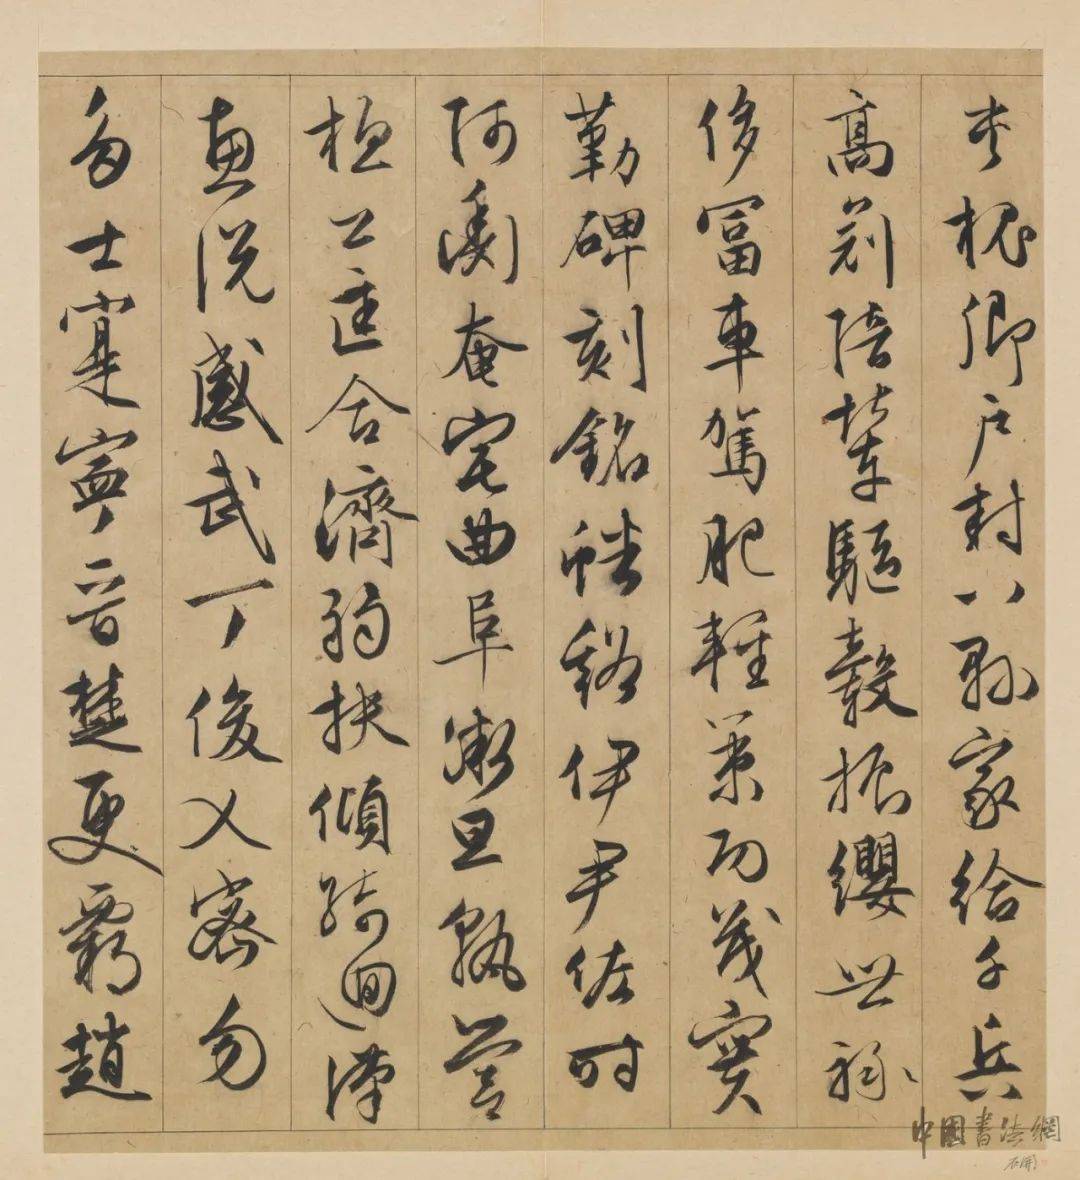 夾槐卿户封八縣家給千兵
高冠陪輦驅轂振纓世祿
侈富車駕肥輕策功茂實
勒碑刻銘磻谿伊尹佐時
阿衡奄宅曲阜微旦孰營
桓公匡合濟弱扶傾綺迴漢
惠說感武丁俊乂密勿
多士寔寧晉楚更霸趙
中國書法網
石開